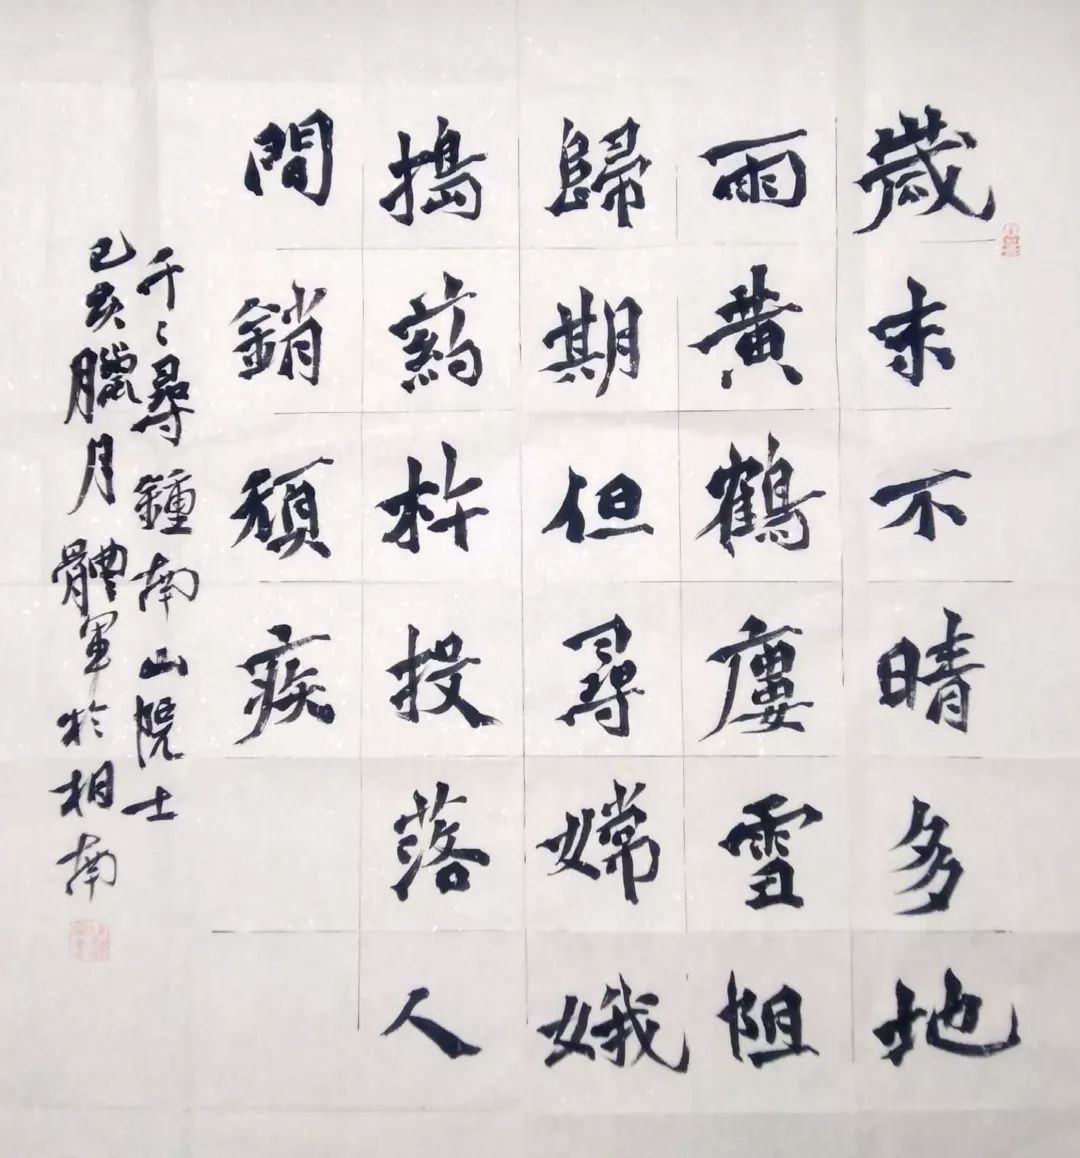 歲末不晴多地
雨黃鶴廔雪阻
歸期但尋嫦娥
搗药杵投落人
間銷頑疾
千〻尋鍾南山院士
己亥臘月體軍於相南